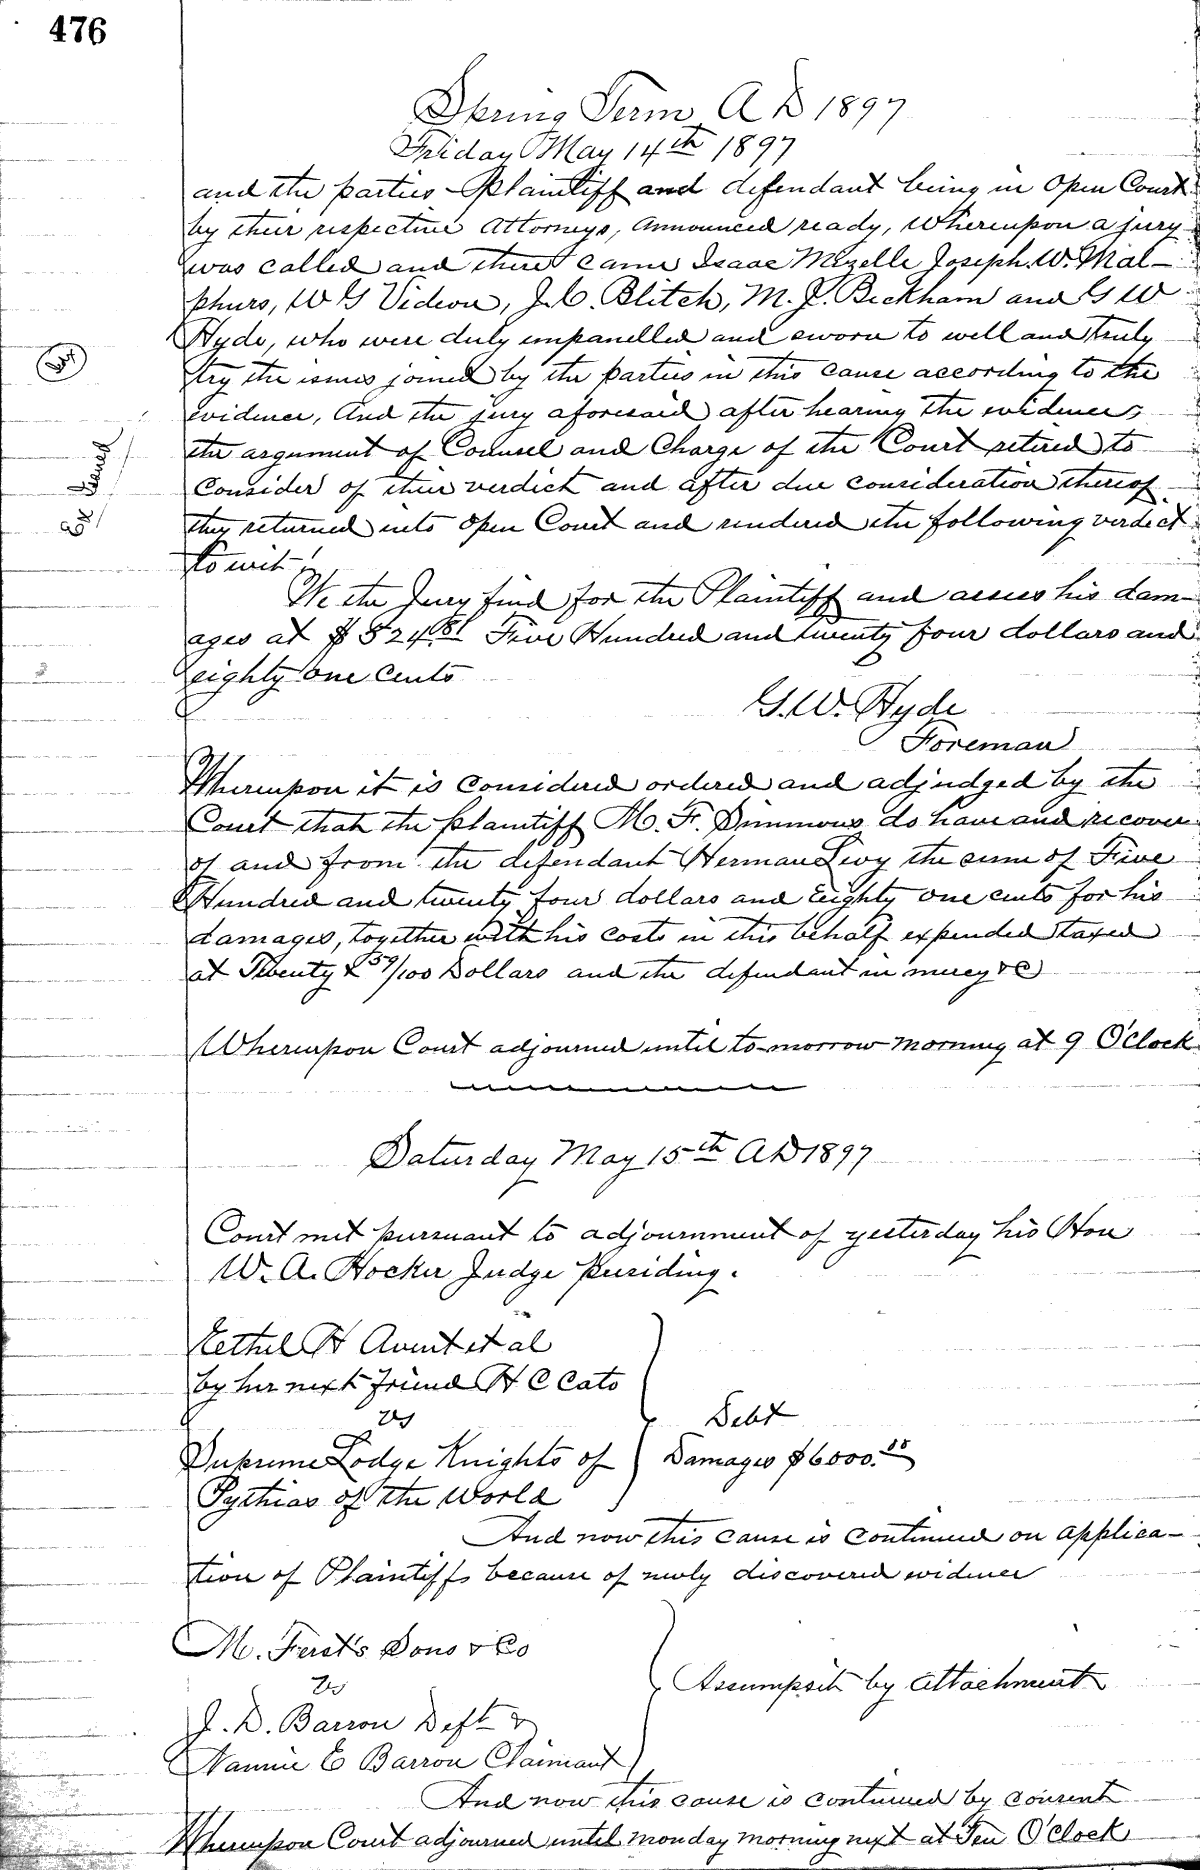 476
Spring Term A D 1897
Friday May 14th 1897
and the parties Plaintiff and defendant being in Open Court
by their respective Attorneys, announced ready, Whereupon a jury
was called and there came Isaac Mizelle Joseph. W. Mal-
phurs, W G Videon, J. C. Blitch, M. J. Beckham and G W
Hyde, who were duly empanelled and sworn to well and truly
try the issues joined by the parties in this cause according to the
evidence, And the jury aforesaid after hearing the evidence,
the argument of Counsel and Charge of the Court retired to
Consider of their verdict and after due consideration thereof
they returned into Open Court and rendered the following verdict
to wit!
Ex Issued
We the Jury find for the Plaintiff and assess his dam-
ages at $524.81 Five Hundred and twenty four dollars and
eighty one cents
G. W. Hyde
Foreman
Whereupon it is considered ordered and adjudged by the
Court that the plaintiff M. F. Simmons do have and recover
of and from the defendant Herman Levy the sum of Five
Hundred and twenty four dollars and Eighty one cents for his
damages, together with his costs in this behalf expended taxed
at Twenty & 59/100 Dollars and the defendant in mercy &C
Whereupon Court adjourned until to-morrow morning at 9 O'Clock
Saturday May 15th AD 1897
Court met pursuant to adjournment of yesterday his Hon
W. A. Hocker Judge Presiding.
Eethel H Avent et al
by her next friend H C Cato
vs
Debt
Supreme Lodge Knights of
Damages $6000.00
Pythias of the World
And now this cause is continued on applica-
tion of Plaintiffs because of newly discovered evidence
M. Ferst's Sons & Co
vs
Assumpsit by attachment
J. D. Barron Deft &
Nannie E Barron Claimant
And now this cause is continued by consent
Whereupon Court adjourned until monday morning next at Ten O'Clock